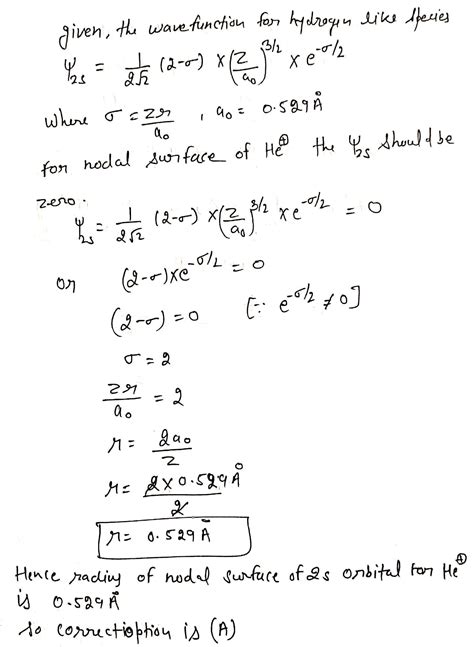 given, the wavefunction for hydrogen like species
Ψ2s = 1/2√2 (2-σ) × (Z/a₀)^3/2 × e^-σ/2
where σ = Zr/a₀ , a₀ = 0.529Å
for nodal surface of He⊕ the Ψ2s should be
zero.
Ψ2s = 1/2√2 (2-σ) × (Z/a₀)^3/2 × e^-σ/2 = 0
or (2-σ)×e^-σ/2 = 0
(2-σ) = 0 [∵ e^-σ/2 ≠ 0]
σ = 2
Zr/a₀ = 2
r = 2a₀/Z
r = 2×0.529Å/2
r = 0.529Å
Hence radius of nodal surface of 2s orbital for He⊕
is 0.529Å
so correct option is (A)